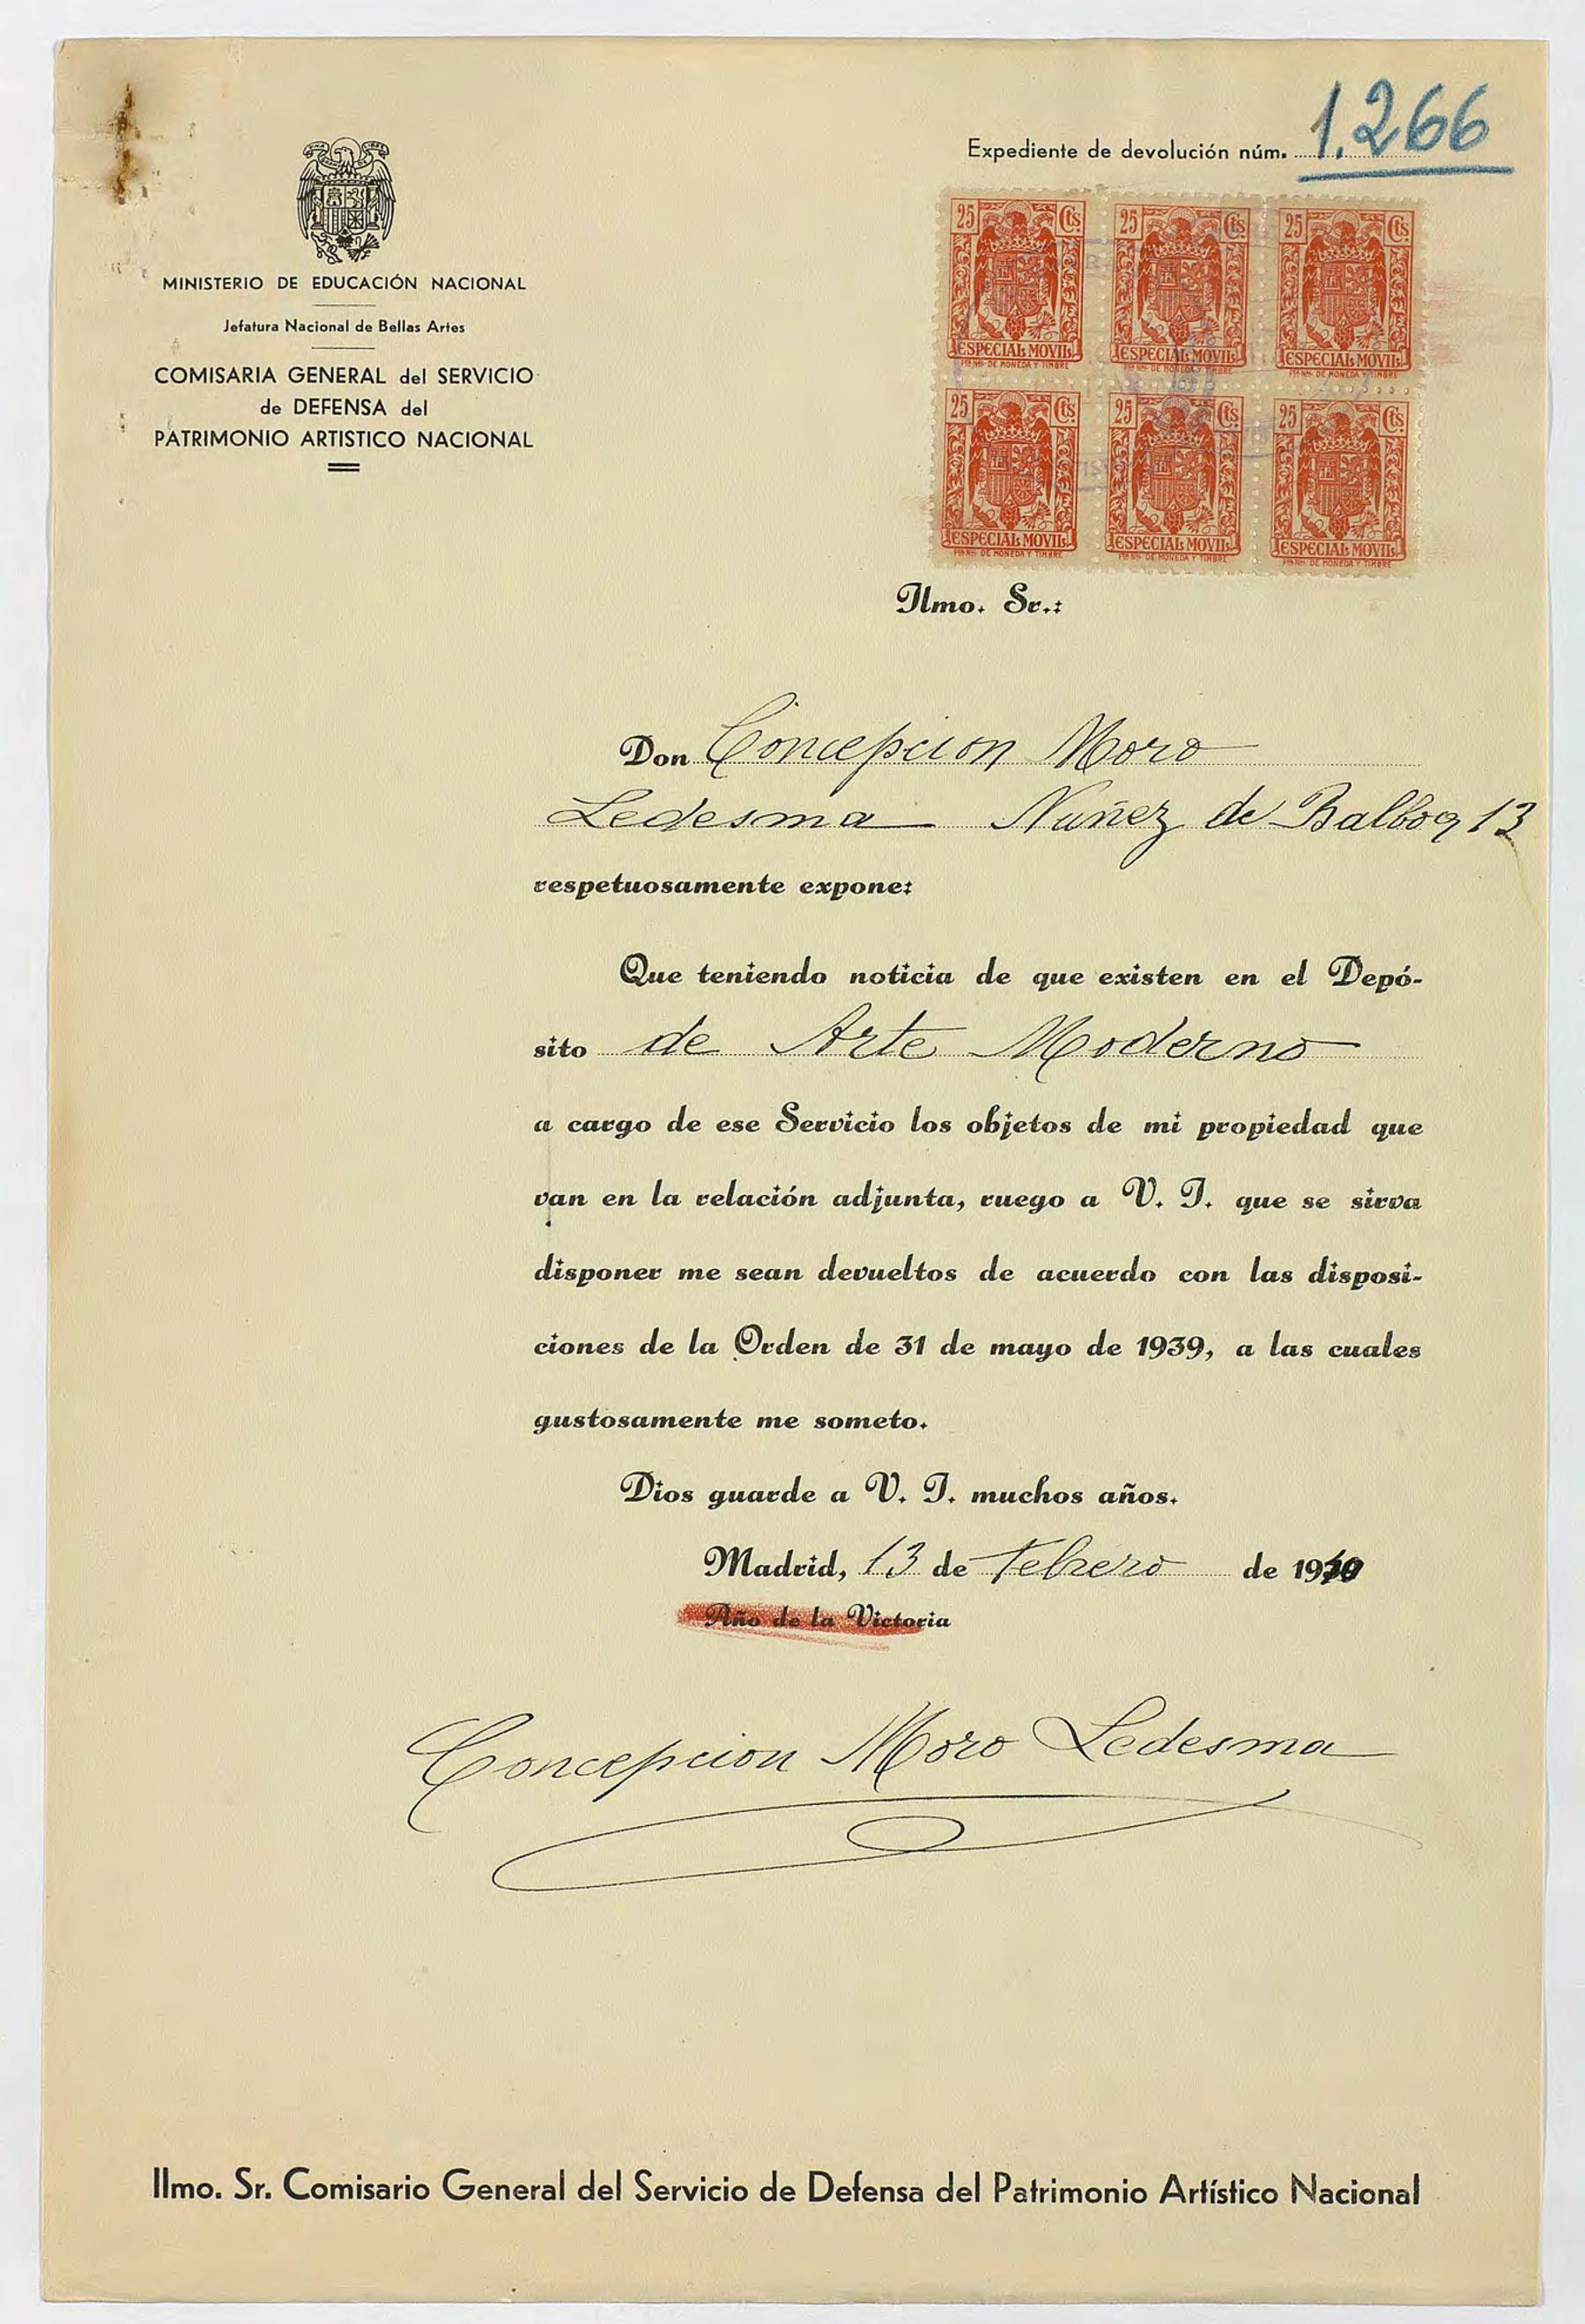 Expediente de devolución núm. 1.266
MINISTERIO DE EDUCACIÓN NACIONAL
Jefatura Nacional de Bellas Artes
COMISARIA GENERAL del SERVICIO
de DEFENSA del
PATRIMONIO ARTISTICO NACIONAL
25 Cts. 25 Cts. 25 Cts.
ESPECIAL MOVIL ESPECIAL MOVIL ESPECIAL MOVIL
25 Cts. 25 Cts. 25 Cts.
ESPECIAL MOVIL ESPECIAL MOVIL ESPECIAL MOVIL
Ilmo. Sr.:
Don Concepcion Moro
Ledesma Nuñez de Balboa 13
respetuosamente expone:
Que teniendo noticia de que existen en el Depó-
sito de Arte Moderno
a cargo de ese Servicio los objetos de mi propiedad que
van en la relación adjunta, ruego a V. I. que se sirva
disponer me sean devueltos de acuerdo con las disposi-
ciones de la Orden de 31 de mayo de 1939, a las cuales
gustosamente me someto.
Dios guarde a V. I. muchos años.
Madrid, 13 de Febrero de 1940
Año de la Victoria
Concepcion Moro Ledesma
Ilmo. Sr. Comisario General del Servicio de Defensa del Patrimonio Artístico Nacional